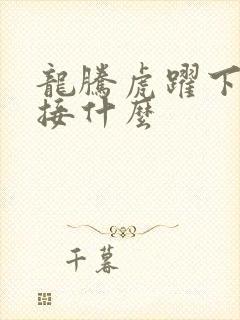 龍騰虎躍下
接什麼
千暮